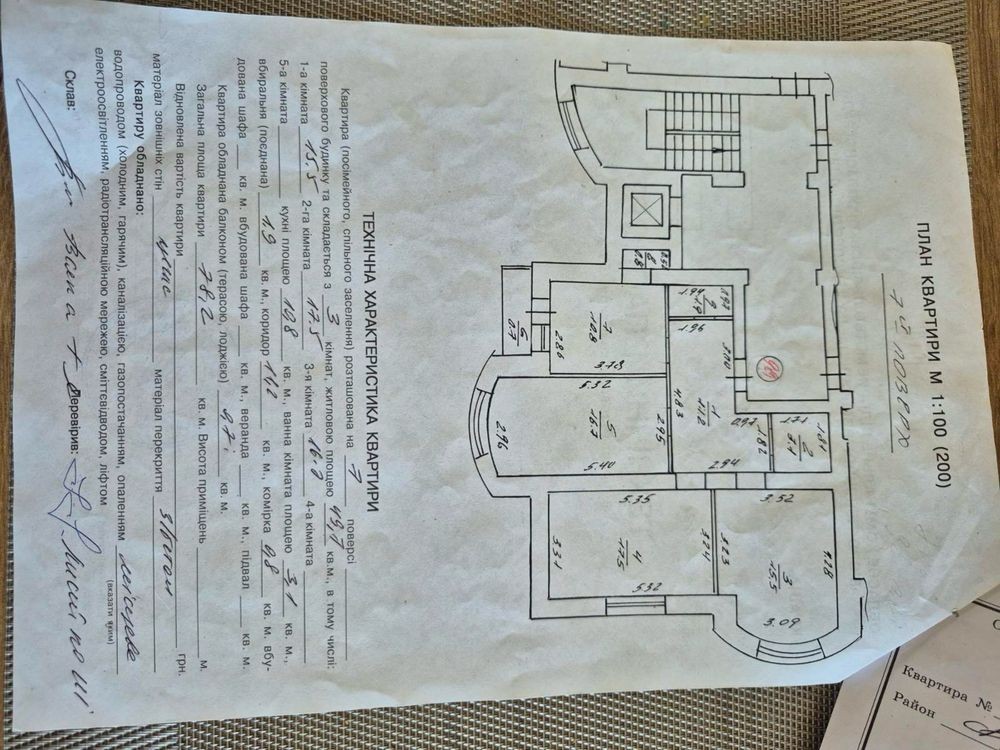 ПЛАН КВАРТИРИ М 1:100 (200)
7й поверх
1.44
2
1.9
0.92
1.96
0.8
7
10.8
2.86
3.78
6
0.7
5.32
5
16.7
2.96
2.95
5.40
4.83
1
14.2
2.94
1.82
2
3.1
1.71
1.81
5.35
4
17.5
3.31
3.24
5.32
3.52
3
15.5
3.23
4.28
3.09
ТЕХНІЧНА ХАРАКТЕРИСТИКА КВАРТИРИ
Квартира (посімейного, спільного заселення) розташована на 7 поверсі
поверхового будинку та складається з 3 кімнат, житловою площею 49,7 кв.м., в тому числі:
1-а кімната 15,5 2-га кімната 17.5 3-я кімната 16.7 4-а кімната
5-а кімната кухні площею 10.8 кв. м., ванна кімната площею 3,1 кв. м.,
вбиральня (поєднана) 1.9 кв. м., коридор 14,2 кв. м., комірка 0,8 кв. м. вбу-
дована шафа кв. м. вбудована шафа кв. м., веранда кв. м., підвал кв. м.
Квартира обладнана балконом (терасою, лоджією) 0,7 кв. м.
Загальна площа квартири 78,2 кв. м. Висота приміщень м.
Відновлена вартість квартири грн.
матеріал зовнішніх стін матеріал перекриття з/бетон
Квартиру обладнано:
водопроводом (холодним, гарячим), каналізацією, газопостачанням, опаленням місцеве
(вказати яким)
електроосвітленням, радіотрансляційною мережею, сміттєвідводом, ліфтом
Склав: Перевірив:
Квартира №
Район